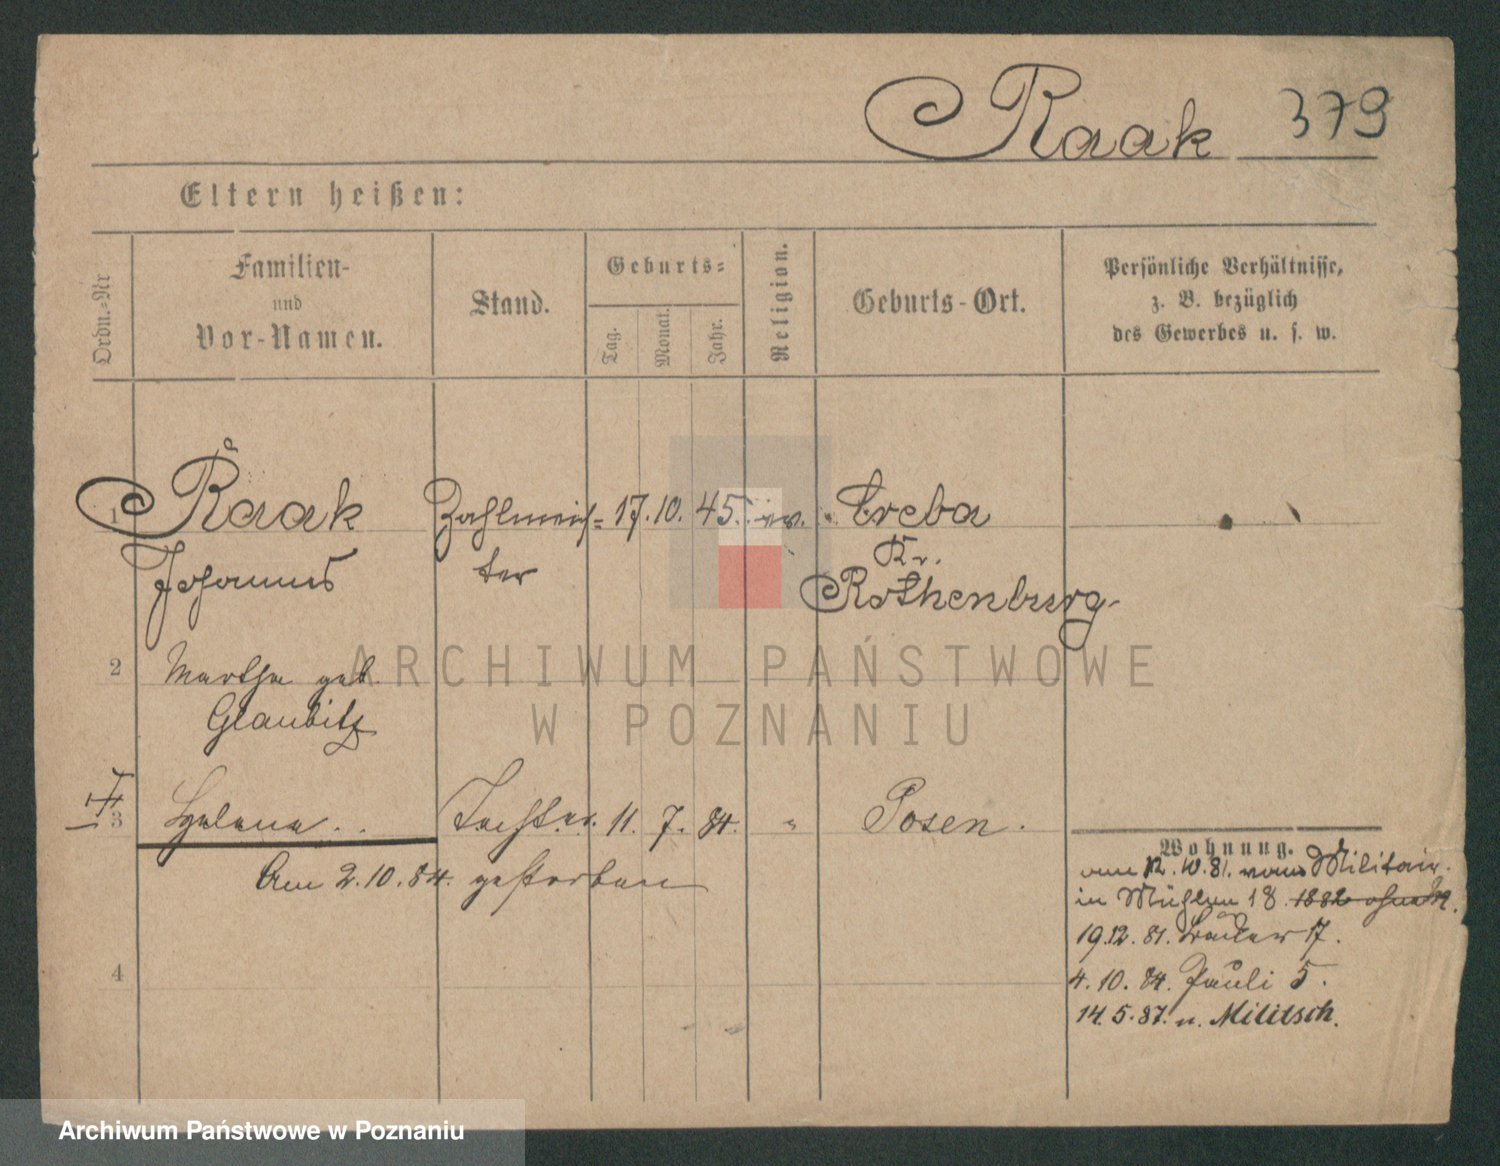 Raak 379
Eltern heißen:
Ordn.-Nr
Familien-
und
Vor-Namen.
Stand.
Geburts-
Tag.
Monat.
Jahr.
Religion.
Geburts-Ort.
Persönliche Verhältnisse,
z. B. bezüglich
des Gewerbes u. s. w.
1 Raak Zahlmeis- 17. 10. 45. ev. Creba
Johannes ter Kr.
Rothenburg
2 Martha geb.
Glaubitz
3 Helene Tochter. 11. 7. 84. " Posen.
Am 2.10.84. gestorben
4
Wohnung.
am 12.10.81. vom Militair.
in Mühlen 18. 1882 ohne
19.12.81. Bäcker 17.
4.10.84. Pauli 5.
14.5.87. n. Militsch.
ARCHIWUM PAŃSTWOWE
W POZNANIU
Archiwum Państwowe w Poznaniu